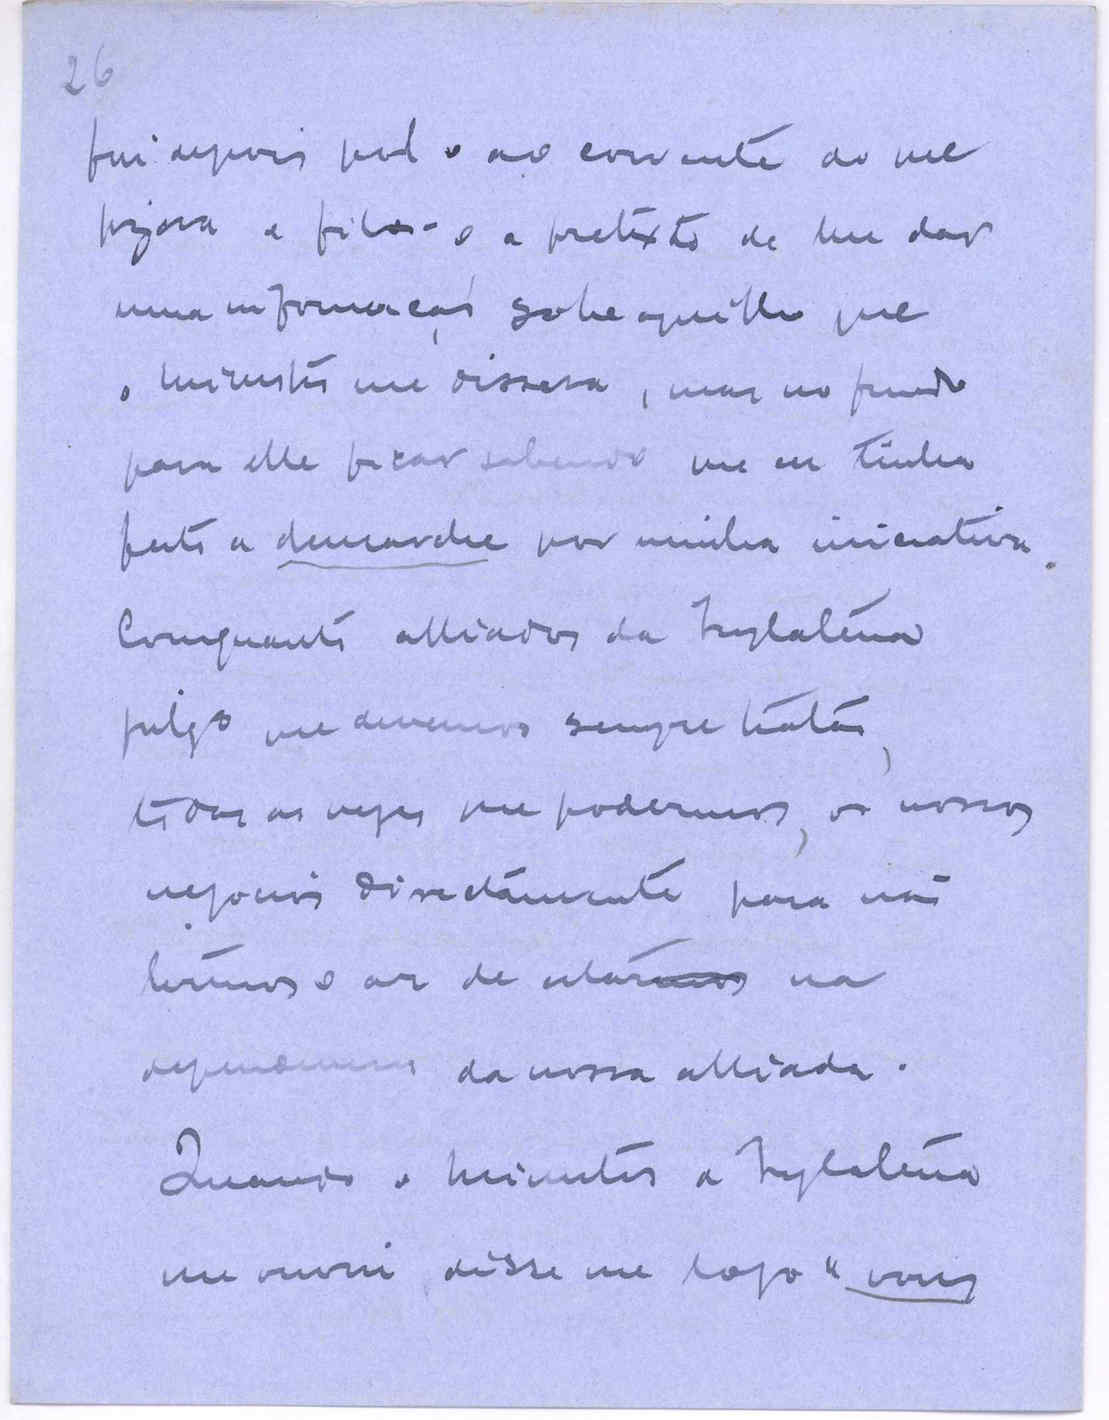 26
fui depois pol-o ao corrente do que
fizera e fil-o a pretexto de lhe dar
uma informação sobre aquillo que
o Ministro me dissera, mas no fundo
para elle ficar sabendo que eu tinha
feito a demarche por minha iniciativa.
Comquanto alliados da Inglaterra
julgo que devemos sempre tratar,
todas as vezes que podermos, os nossos
negocios directamente para não
termos o ar de estarmos na
dependencia da nossa alliada.
Quando o Ministro d'Inglaterra
me ouviu disse me logo "vous